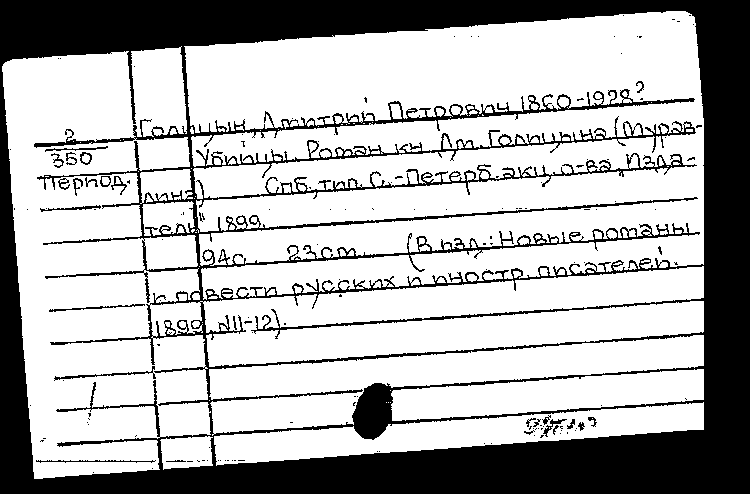 Голицын, Дмитрий Петрович, 1860-1928?
2
350
Период.
Убийцы. Роман кн. Дм. Голицына (Мурав-
лина). Спб., тип. С.-Петерб. акц. о-ва "Изда-
тель", 1899.
94с. 23см. (В изд.: Новые романы
и повести русских и иностр. писателей.
1899, №11-12).